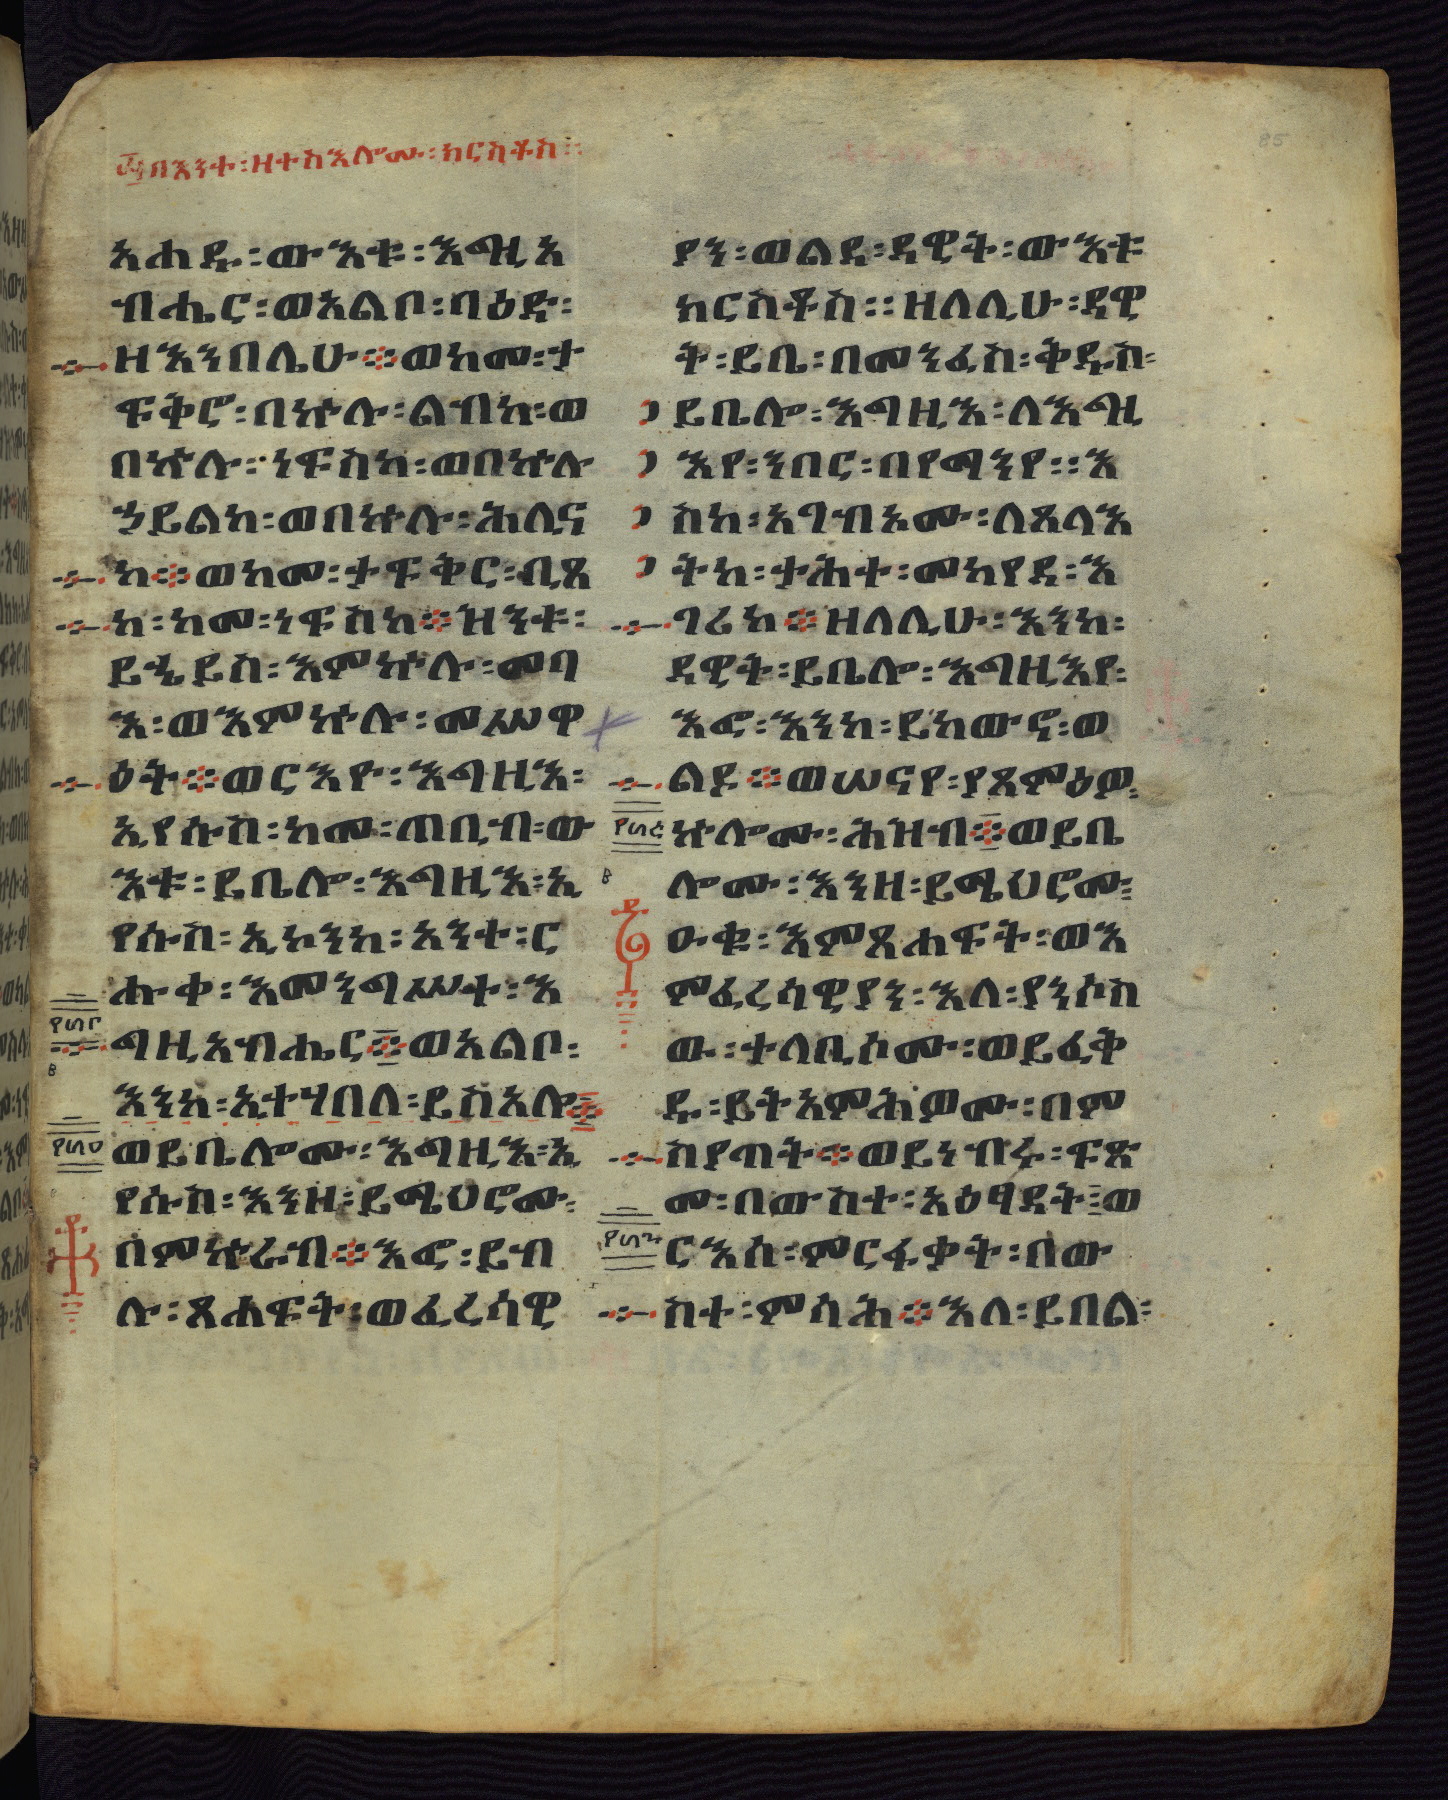 በእንተ፡ዘተስእሎሙ፡ክርስቶስ፡፡
አሐዱ፡ውእቱ፡እግዚአ
ብሔር፡ወአልቦ፡ባዕድ፡
ዘእንበሌሁ፨ወከመ፡ታ
ፍቅሮ፡በኵሉ፡ልብከ፡ወ
በኵሉ፡ነፍስከ፡ወበኵሉ
ኃይልከ፡ወበኵሉ፡ሕሊና
ከ፨ወከመ፡ታፍቅር፡ቢጸ
ከ፡ከመ፡ነፍስከ፨ዝንቱ፡
ይኄይስ፡እምኵሉ፡መባ
እ፡ወእምኵሉ፡መሥዋ
ዕት፨ወርእዮ፡እግዚእ፡
ኢየሱስ፡ከመ፡ጠቢብ፡ው
እቱ፡ይቤሎ፡እግዚእ፡ኢ
የሱስ፡ኢኮንከ፡አንተ፡ር
ሑቀ፡እመንግሥተ፡እ
ግዚአብሔር፨ወአልቦ፡
እንከ፡ኢተሃበለ፡ይስአሎ፨
ወይቤሎሙ፡እግዚእ፡ኢ
የሱስ፡እንዘ፡ይሜህሮሙ፡
በምኵራብ፨እፎ፡ይብ
ሉ፡ጸሐፍት፡ወፈረሳዊ
ያን፡ወልደ፡ዳዊት፡ውእቱ
ክርስቶስ፡፡ዘለሊሁ፡ዳዊ
ት፡ይቤ፡በመንፈስ፡ቅዱስ፡
ይቤሎ፡እግዚእ፡ለእግዚ
እየ፡ንበር፡በየማንየ፡፡እ
ስከ፡አገብኦሙ፡ለጸላእ
ትከ፡ታሕተ፡መከየደ፡እ
ገሪከ፨ዘለሊሁ፡እንከ፡
ዳዊት፡ይቤሎ፡እግዚእየ፡
እፎ፡እንከ፡ይከውኖ፡ወ
ልዶ፨ወሠናየ፡ያጸምዕዎ፡
ኵሎሙ፡ሕዝብ፨ወይቤ
ሎሙ፡እንዘ፡ይሜህሮሙ፡
ዑቁ፡እምጸሐፍት፡ወእ
ምፈረሳዊያን፡እለ፡ያንሶስ
ው፡ተለቢሶሙ፡ወይፈቅ
ዱ፡ይትአምሕዎሙ፡በም
ስያጣት፨ወይነብሩ፡ፍጽ
መ፡በውስተ፡አዕፃዳት፡ወ
ርእሰ፡ምርፋቃት፡በው
ስተ፡ምሳሕ፨እለ፡ይበል፡